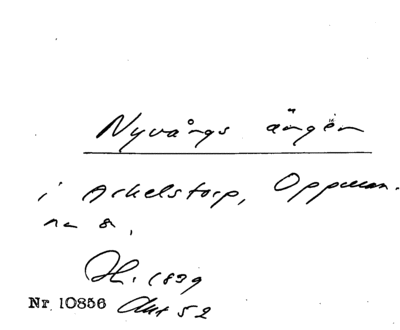 Nyvångs ängen
i Arkelstorp, Oppman-
na s.
H. 1839
Nr 10856 Akt 52